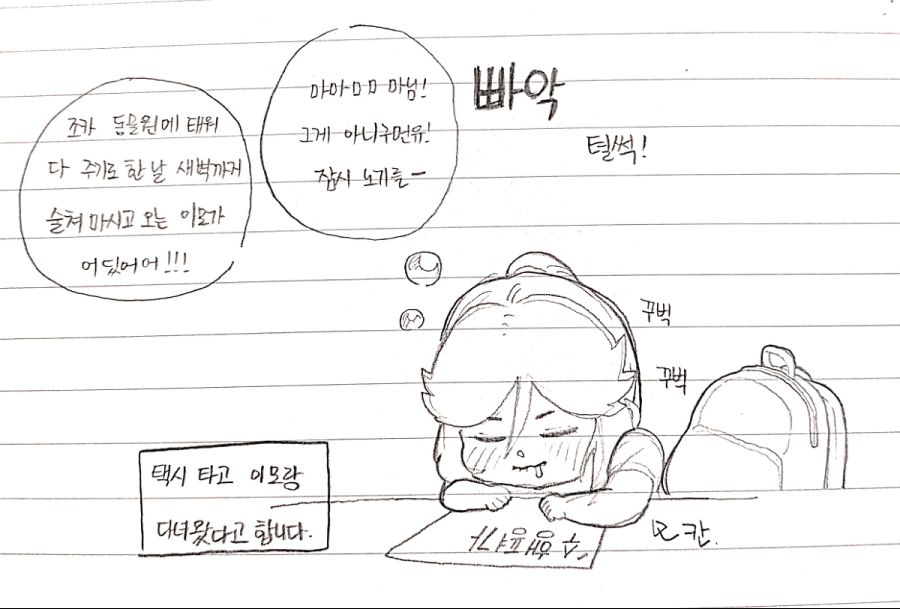 조카 동물원에 태워
다 주기로 한 날 새벽까지
술쳐마시고 오는 이모가
어딨어어!!!
마아ㅁㅁ 마님!
그게 아니구먼유!
잠시 노기를ㅡ
빠악
털썩!
꾸벅
꾸벅
택시 타고 이모랑
다녀왔다고 합니다.